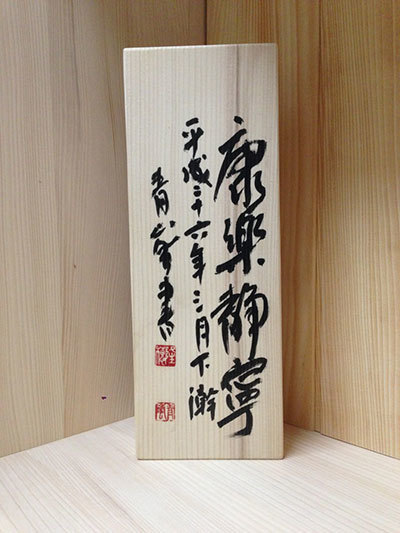 康樂静寧
平成二十六年三月下澣
青峯書